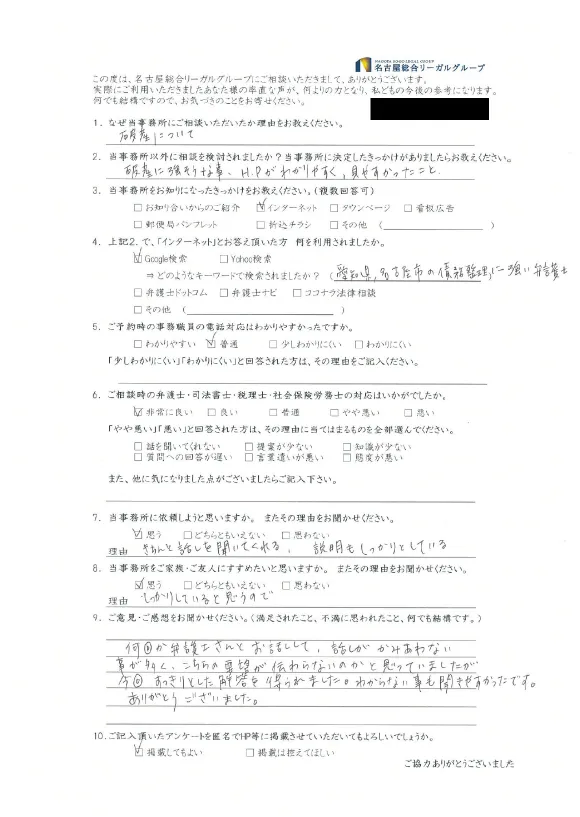 NAGOYA SOGO LEGAL GROUP
名古屋総合リーガルグループ
この度は、名古屋総合リーガルグループにご相談いただきまして、ありがとうございます。
実際にご利用いただきましたあなた様の率直な声が、何よりの力となり、私どもの今後の参考になります。
何でも結構ですので、お気づきのことをお寄せください。
1. なぜ当事務所にご相談いただいたか理由をお教えください。
破産について
2. 当事務所以外に相談を検討されましたか？当事務所に決定したきっかけがありましたらお教えください。
破産に強そうな事、H.Pがわかりやすく、見やすかったこと
3. 当事務所をお知りになったきっかけをお教えください。(複数回答可)
□お知り合いからのご紹介 ☑インターネット □タウンページ □看板広告
□郵便局パンフレット □折込チラシ □その他 ( )
4. 上記2. で、「インターネット」とお答え頂いた方 何を利用されましたか。
☑Google検索 □Yahoo検索
⇒どのようなキーワードで検索されましたか？ (愛知県,名古屋市の債務整理,に強い弁護士
□弁護士ドットコム □弁護士ナビ □ココナラ法律相談
□その他 ( )
5. ご予約時の事務職員の電話対応はわかりやすかったですか。
□わかりやすい ☑普通 □少しわかりにくい □わかりにくい
「少しわかりにくい」「わかりにくい」と回答された方は、その理由をご記入ください。
6. ご相談時の弁護士・司法書士・税理士・社会保険労務士の対応はいかがでしたか。
☑非常に良い □良い □普通 □やや悪い □悪い
「やや悪い」「悪い」と回答された方は、その理由に当てはまるものを全部選んでください。
□話を聞いてくれない □提案が少ない □知識が少ない
□質問への回答が遅い □言葉遣いが悪い □態度が悪い
また、他に気になりました点がございましたらご記入下さい。
7. 当事務所に依頼しようと思いますか。 またその理由をお聞かせください。
☑思う □どちらともいえない □思わない
理由 きちんと話しを聞いてくれる、 説明もしっかりとしている
8. 当事務所をご家族・ご友人にすすめたいと思いますか。 またその理由をお聞かせください。
☑思う □どちらともいえない □思わない
理由 しっかりしていると思うので
9. ご意見・ご感想をお聞かせください。(満足されたこと、不満に思われたこと、何でも結構です。)
何回か弁護士さんとお話しして、話しがかみあわない
事が多く、こちらの要望が伝わらないのかと思っていましたが
今回 はっきりとした解答を得られました。わからない事も聞きやすかったです。
ありがとうございました。
10. ご記入頂いたアンケートを匿名でHP等に掲載させていただいてもよろしいでしょうか。
☑掲載してもよい □掲載は控えてほしい
ご協力ありがとうございました